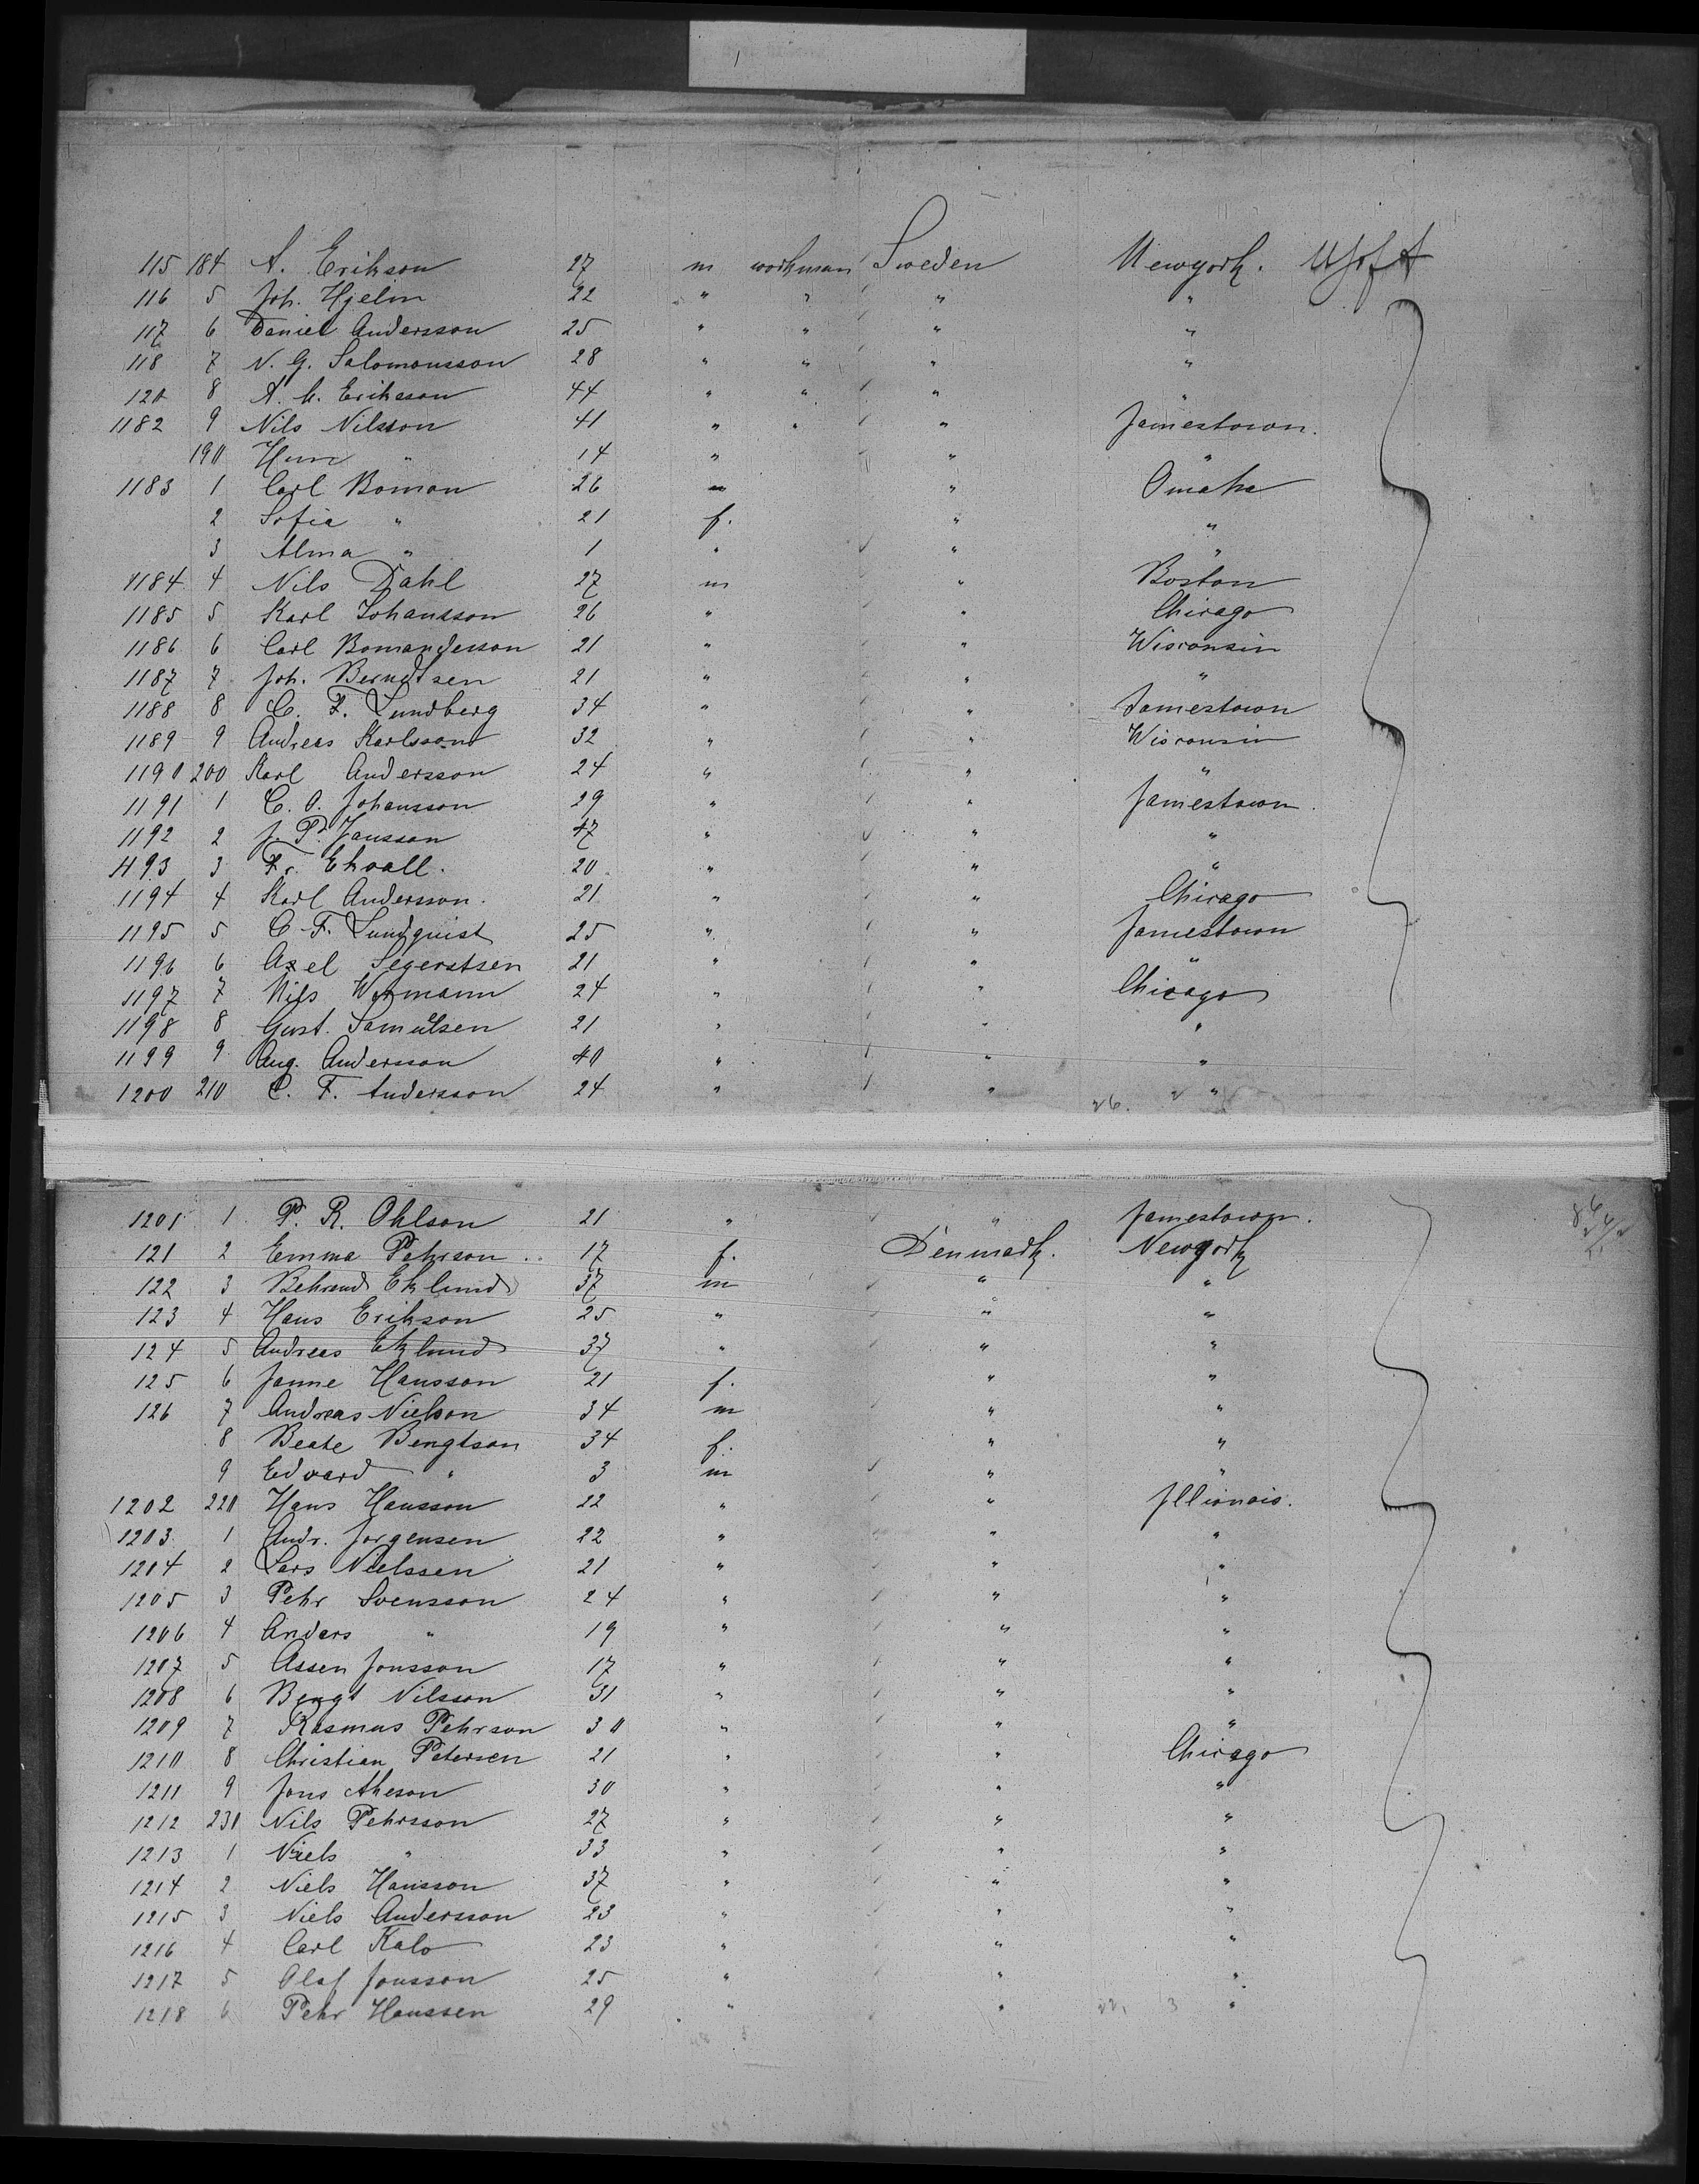 115 184 A. Erikson 27 m workman Sweden Newyork. USofA
116 5 Joh. Hjelm 22 " " " "
117 6 Daniel Andersson 25 " " " "
118 7 N. G. Salomonsson 28 " " " "
120 8 A. M. Eriksson 44 " " " "
1182 9 Nils Nilsson 41 " " " Jamestown.
190 " 14 " " "
1183 1 Carl Boman 26 m " Omaha
2 Sofia " 21 f. " "
3 Alma " 1 " " "
1184 4 Nils Dahl 27 m " Boston
1185 5 Karl Johansson 26 " " Chicago
1186 6 Carl Bomanderson 21 " " Wisconsin
1187 7 Joh. Berndtsen 21 " " "
1188 8 C. F. Lundberg 34 " " Jamestown
1189 9 Andreas Karlsson 32 " " Wisconsin
1190 200 Karl Andersson 24 " " "
1191 1 C. O. Johansson 29 " " Jamestown.
1192 2 J. P. Jansson 47 " " "
1193 3 Fr. Ekvall. 20 " " "
1194 4 Karl Andersson. 21 " " Chicago
1195 5 C. F. Lundquist 25 " " Jamestown
1196 6 Axel Segerstsen 21 " " "
1197 7 Nils Wermann 24 " " Chicago
1198 8 Gust. Samuelsen 21 " " "
1199 9 Aug. Andersson 40 " " "
1200 210 C. F. Andersson 24 " " "
26. 2
1201 1 P. R. Ohlson 21 " " Jamestown.
121 2 Emma Pehrson 17 f. Denmark. Newyork
122 3 Behrend Eklund 37 m " "
123 4 Hans Erikson 25 " " "
124 5 Andreas Eklund 37 " " "
125 6 Janne Hansson 21 f. " "
126 7 Andreas Nielson 34 m " "
8 Beate Bengtson 34 f. " "
9 Edvard " 3 m " "
1202 220 Hans Hansson 22 " " Jllionois.
1203 1 Andr. Jorgensen 22 " " "
1204 2 Lars Nielssen 21 " " "
1205 3 Pehr Svensson 24 " " "
1206 4 Anders " 19 " " "
1207 5 Assen Jonsson 17 " " "
1208 6 Bengt Nilsson 31 " " "
1209 7 Rasmus Pehrson 30 " " "
1210 8 Christian Petersen 21 " " Chicago
1211 9 Jons Akeson 30 " " "
1212 230 Nils Pehrsson 27 " " "
1213 1 Niels " 33 " " "
1214 2 Niels Hansson 37 " " "
1215 3 Niels Andersson 23 " " "
1216 4 Carl Kalo 23 " " "
1217 5 Olaf Jonsson 25 " " "
1218 6 Pehr Hanssen 29 " " "
22. 3